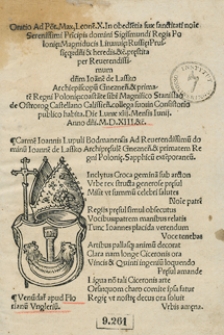 Oratio Ad Pōt. Max. Leonē. X. In obedičtia suæ sanctitati noīe
Serenissimi Pricipis domini Sigismundi Regis Po
loniæ: Magniducis Lituaniæ Russiæ Prus-
siæq; dñi & heredis. &c. prestita
per Reuerendissi-
mum
dñm Ioānē de Lassko
Archiepiscopū Gnezneñ. & prima-
tē Regni Poloniæ: coastāte sibi Magnifico Stanislao
de Ostrorog Castellano Calissieñ. collega suo in Consistorio
publico habita. Die Lunæ xiij. Mensis Iunij.
Anno dñi. M.D.XIII. &c.
Carmē Ioannis Lupuli Bodmanensis Ad Reuerendissimū do
minū Ioannē de Lassco Archiepīscū Gnezneñ. & primatem Re
gni Poloniæ. Sapphicū exaporaneū.
Inclytus Croca geminā sub arcton
Vrbe rex structa generose præsul
Misit vt summū celebri salutes
Noīe patrē
Regis præsul simul obsecutus
Vocibus patrem
Tunc Ioannes placida verendum
Voce tenebas
Artibus pallas animū decorat
Clara nam longe Ciceronis ora
Vincis & Quinti ingeniū loquendo
Præsul amande
Lingua nō tali Ciceronis arte
Orfanos causas
Regiæ vt nostræ decus ora soluit
Vrbis
Venūdaī apud Flo
rianū Vnglerīū.
9.261